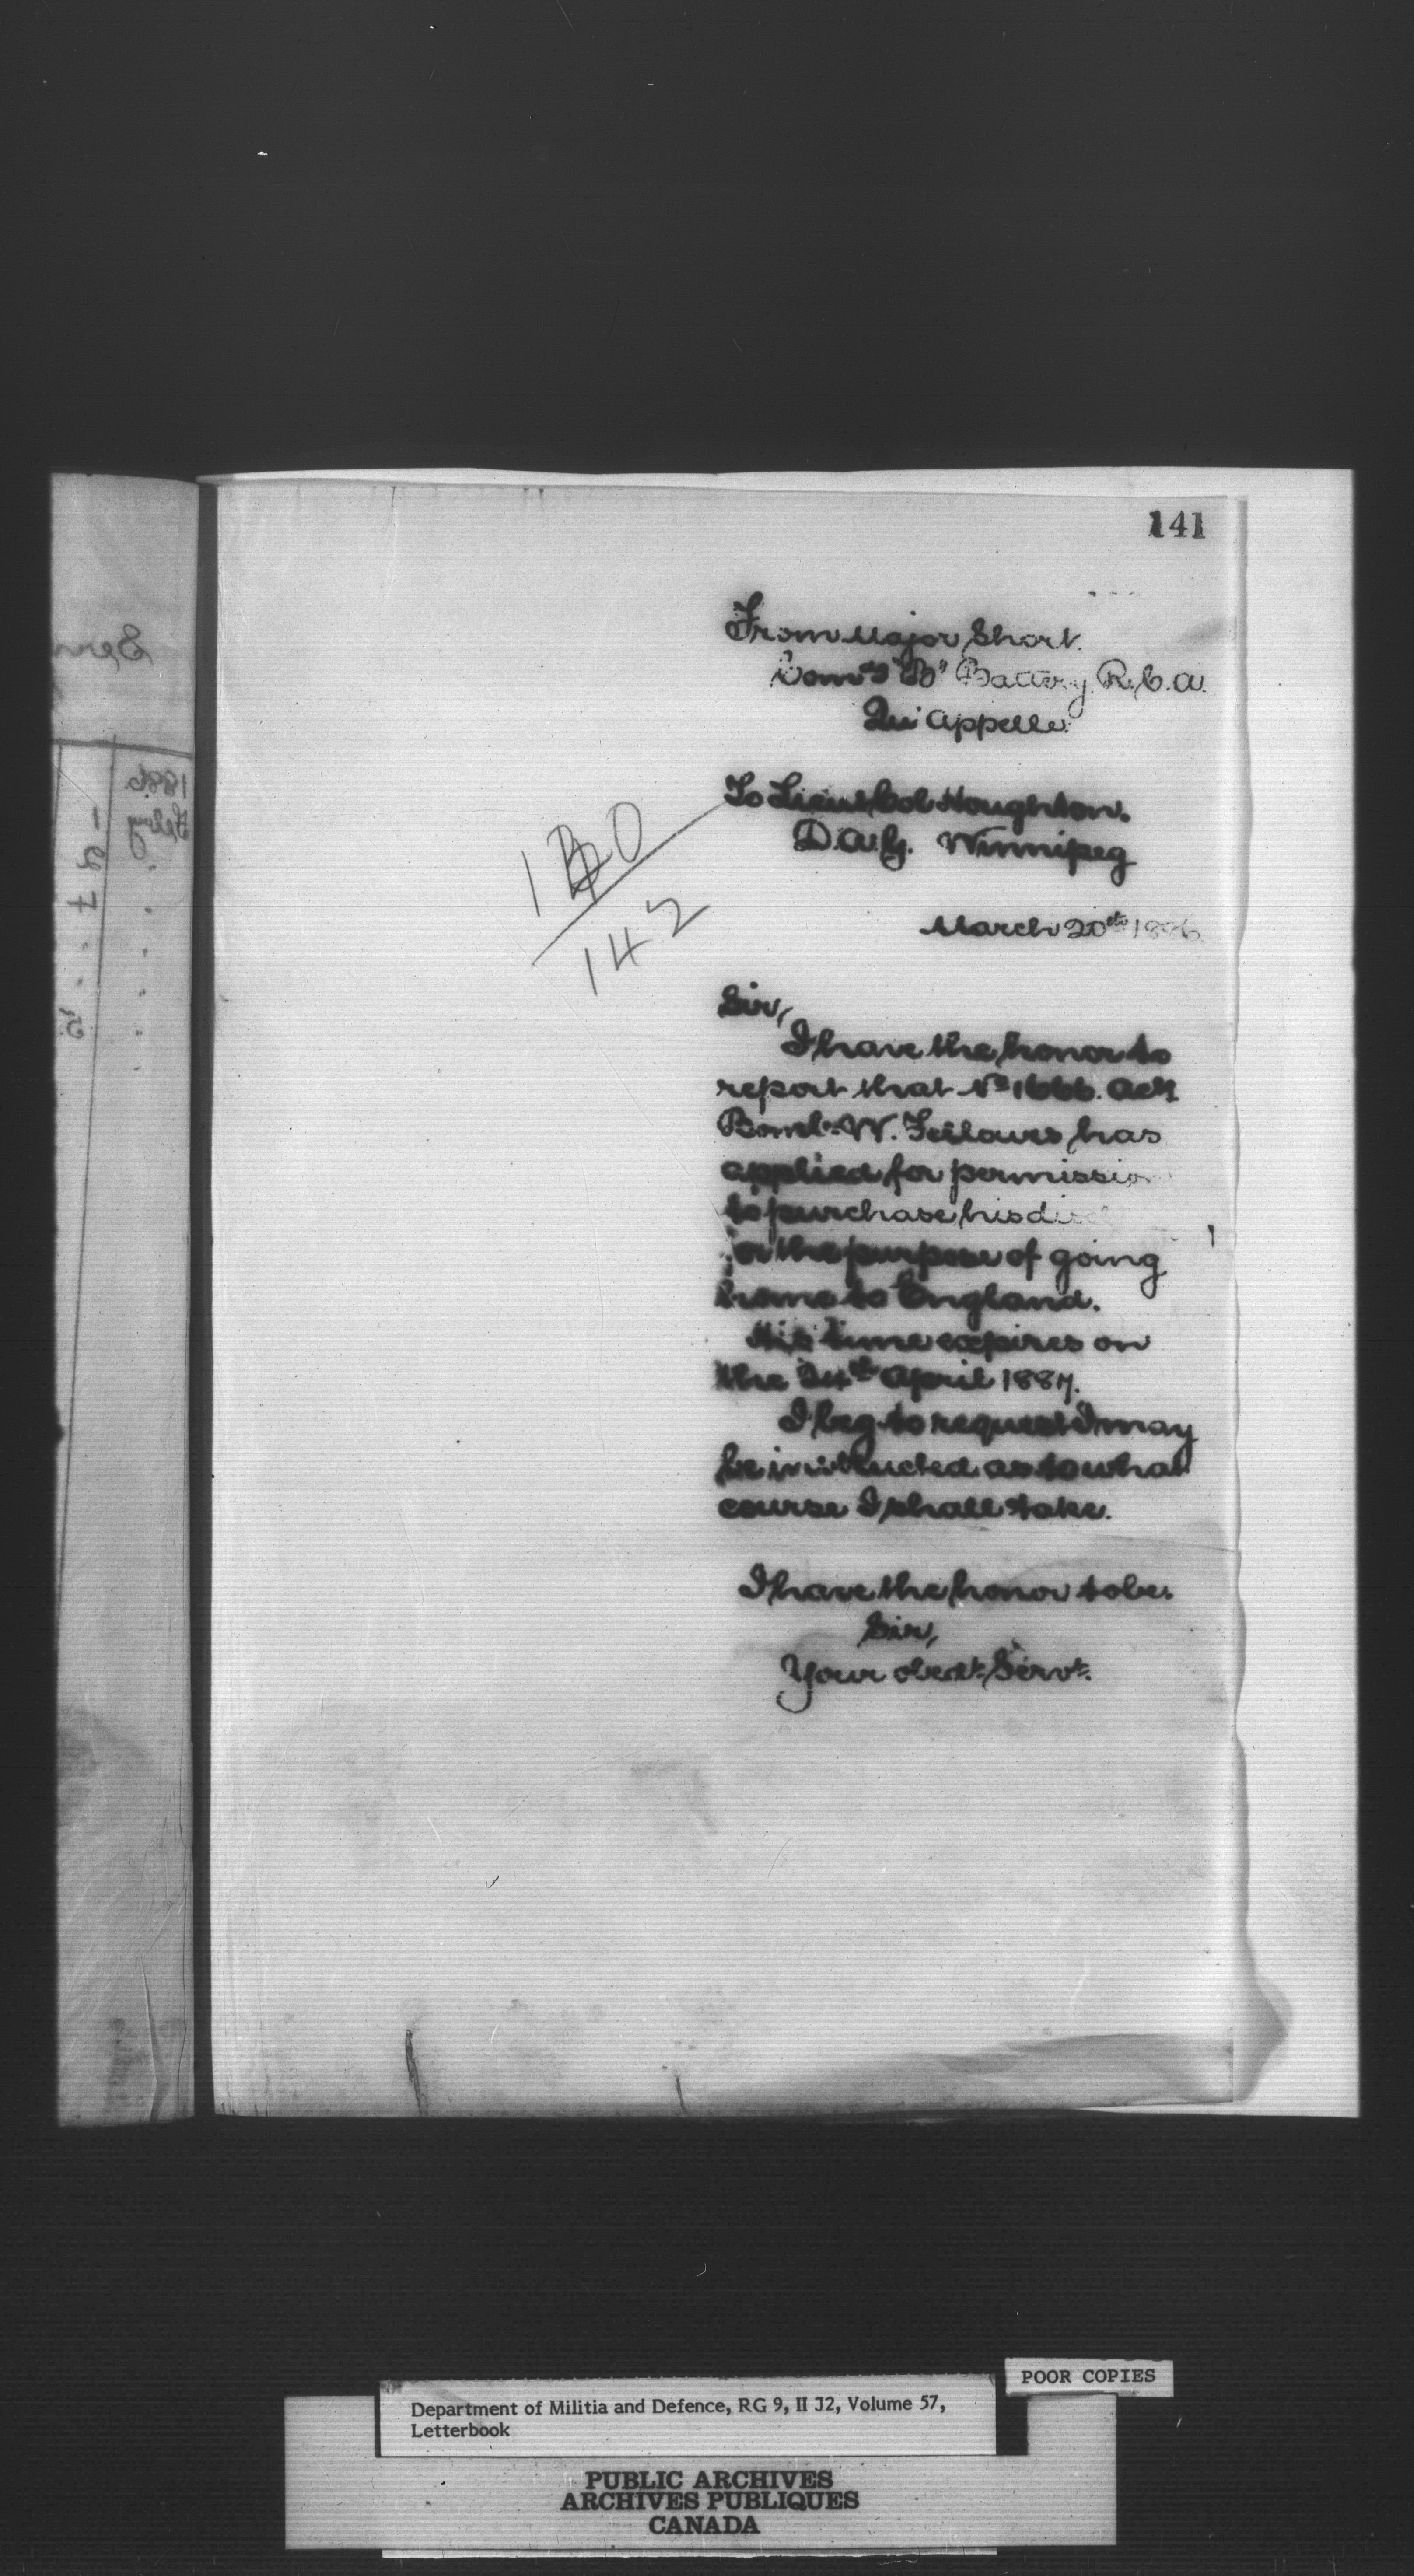 141
From Major Short.
Comdg "B" Battery R.C.A.
Qu'Appelle
To Lieut Col Houghton.
D.A.G. Winnipeg
142
March 20th 1886
Sir,
I have the honor to
report that No 1666. Actg
Bombr. W. Fellowes has
applied for permission
to purchase his
for the purpose of going
home to England.
His time expires on
the 24th April 1887.
I beg to request I may
be instructed as to what
course I shall take.
I have the honor to be.
Sir,
Your obedt. Servt.
1886
Feby
POOR COPIES
Department of Militia and Defence, RG 9, II J2, Volume 57,
Letterbook
PUBLIC ARCHIVES
ARCHIVES PUBLIQUES
CANADA